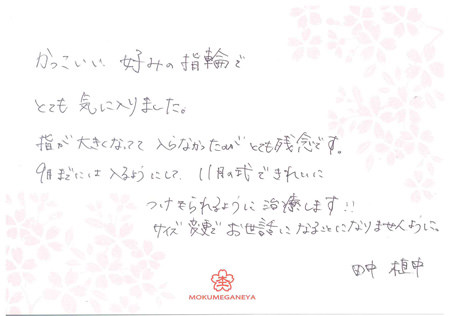 かっこいい 好みの指輪で
とても 気に入りました。
指が 大きくなってて 入らなかったのが とても残念です。
9月までには 入るようにして、11月の式できれいに
つけられるように 治療します!!
サイズ変更で お世話になることになりませんように。
田中 植中
MOKUMEGANEYA